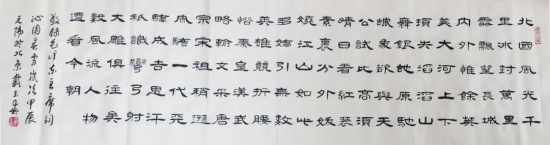 北國風光千
里冰封萬里
雪飄望長城
內外惟餘莽
莽大河上下
頓失滔滔山
舞銀蛇原馳
蠟象欲與天
公試比高須
晴日看紅裝
素裹分外妖
嬈江山如此
多嬌引無數
英雄競折腰
惜秦皇漢武
略輸文采唐
宗宋祖稍遜
風騷一代天
驕成吉思汗
祇識彎弓射
大雕俱往矣
數風流人物
還看今朝
敬録毛澤東主席詞
沁園春雪歲次甲辰
於北京戴玉